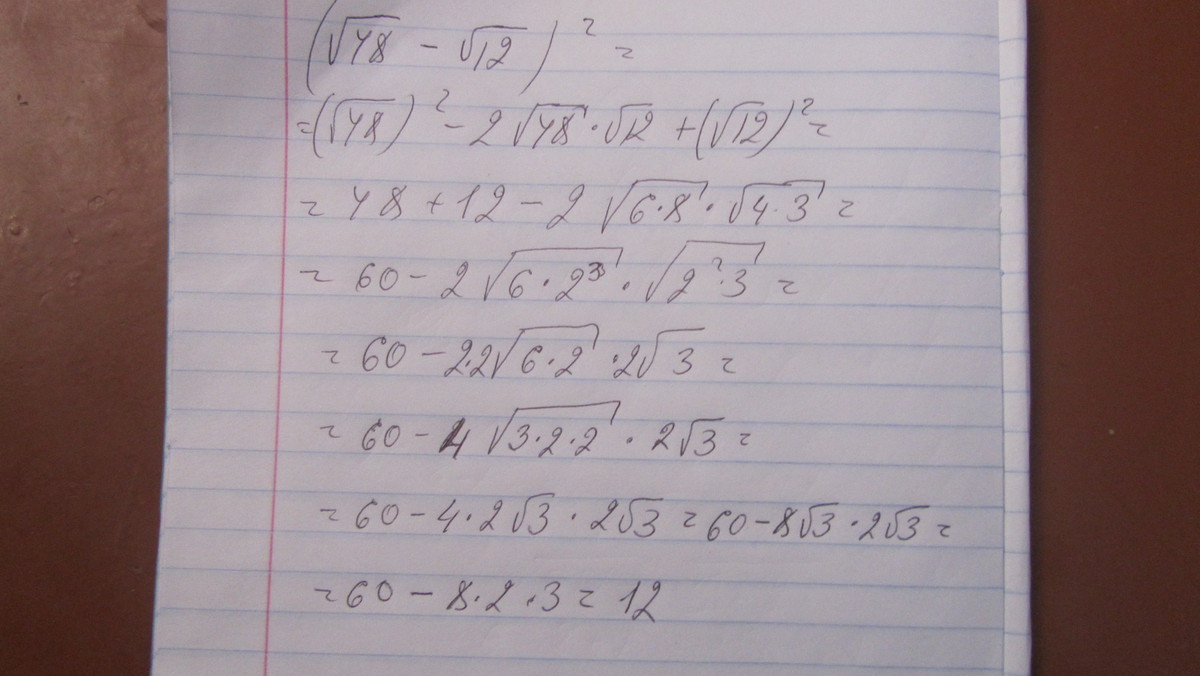 (√48 − √12)² =
= (√48)² − 2√48 · √12 + (√12)² =
= 48 + 12 − 2√6·8 · √4·3 =
= 60 − 2√6·2³ · √2²·3 =
= 60 − 2·2√6·2 · 2√3 =
= 60 − 4√3·2·2 · 2√3 =
= 60 − 4·2√3 · 2√3 = 60 − 8√3 · 2√3 =
= 60 − 8·2·3 = 12